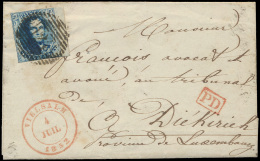 Monsieur
François avocat &
avoué, au tribunal
de
Diekirich
Province de Luxembourg
PD
4
JUIL
1852